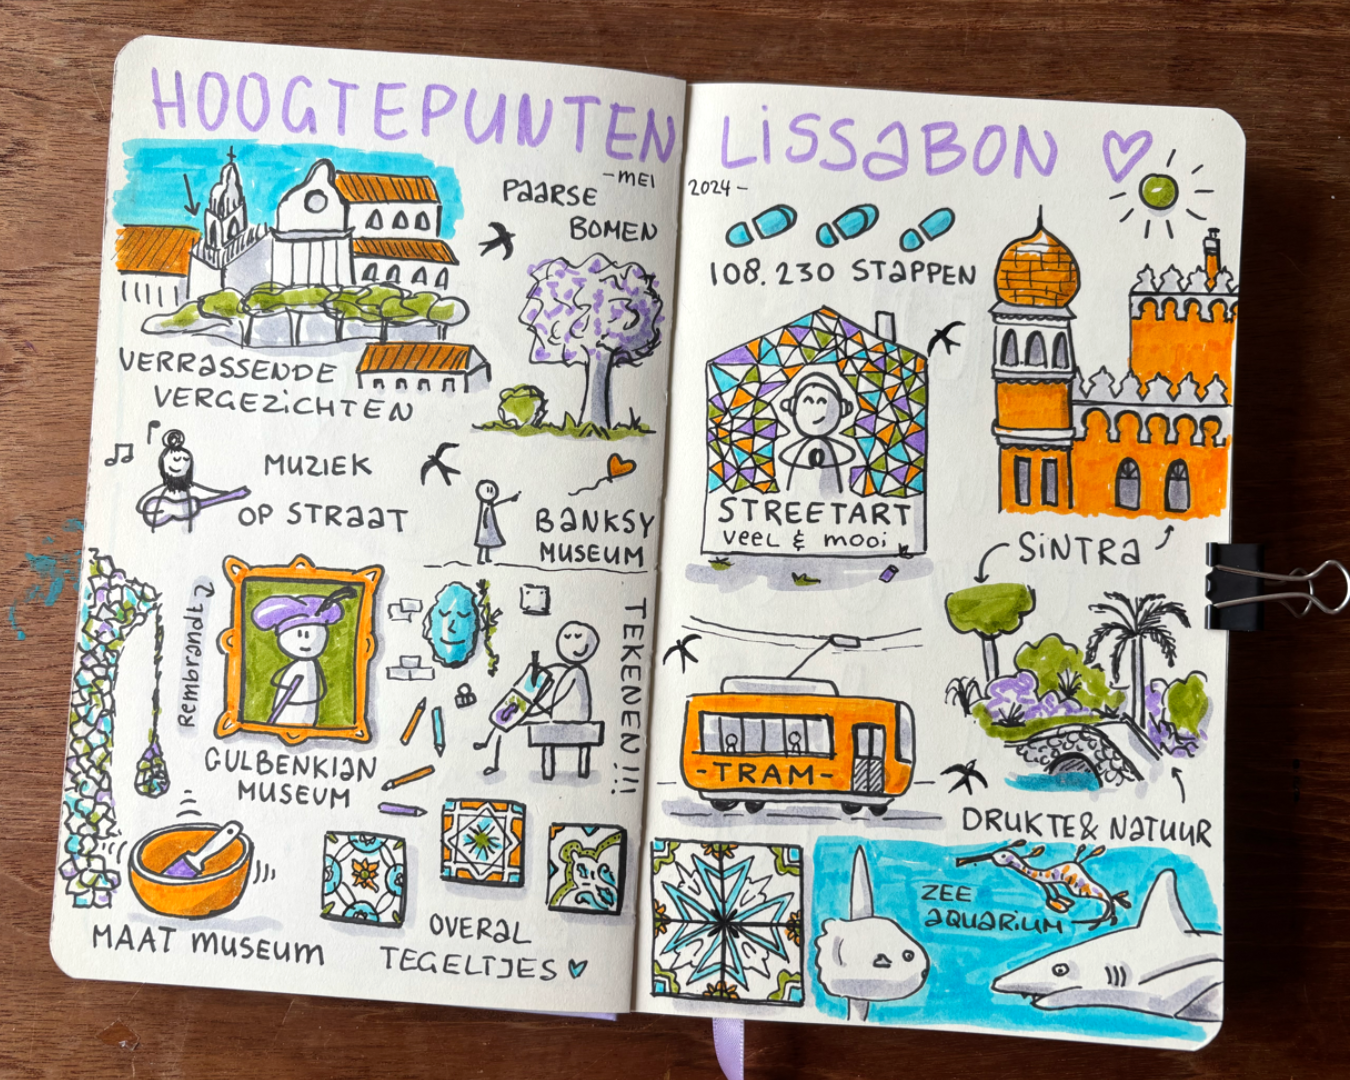 HOOGTEPUNTEN LiSSaBON
-MEI
2024-
PaaRSE
BOMEN
108.230 STaPPEN
VERRaSSENDE
VERGEZiCHTEN
MUZiEK
OP STRaaT
BaNKSY
MUSEUM
STREETaRT
veel & mooi
SiNTRa
Rembrandt
GULBENKiaN
MUSEUM
TEKENEN!!!
-TRaM-
DRUKTE& NaTUUR
MAAT MUSEUM
OVERaL
TEGELTJES
ZEE
aQUaRiUM